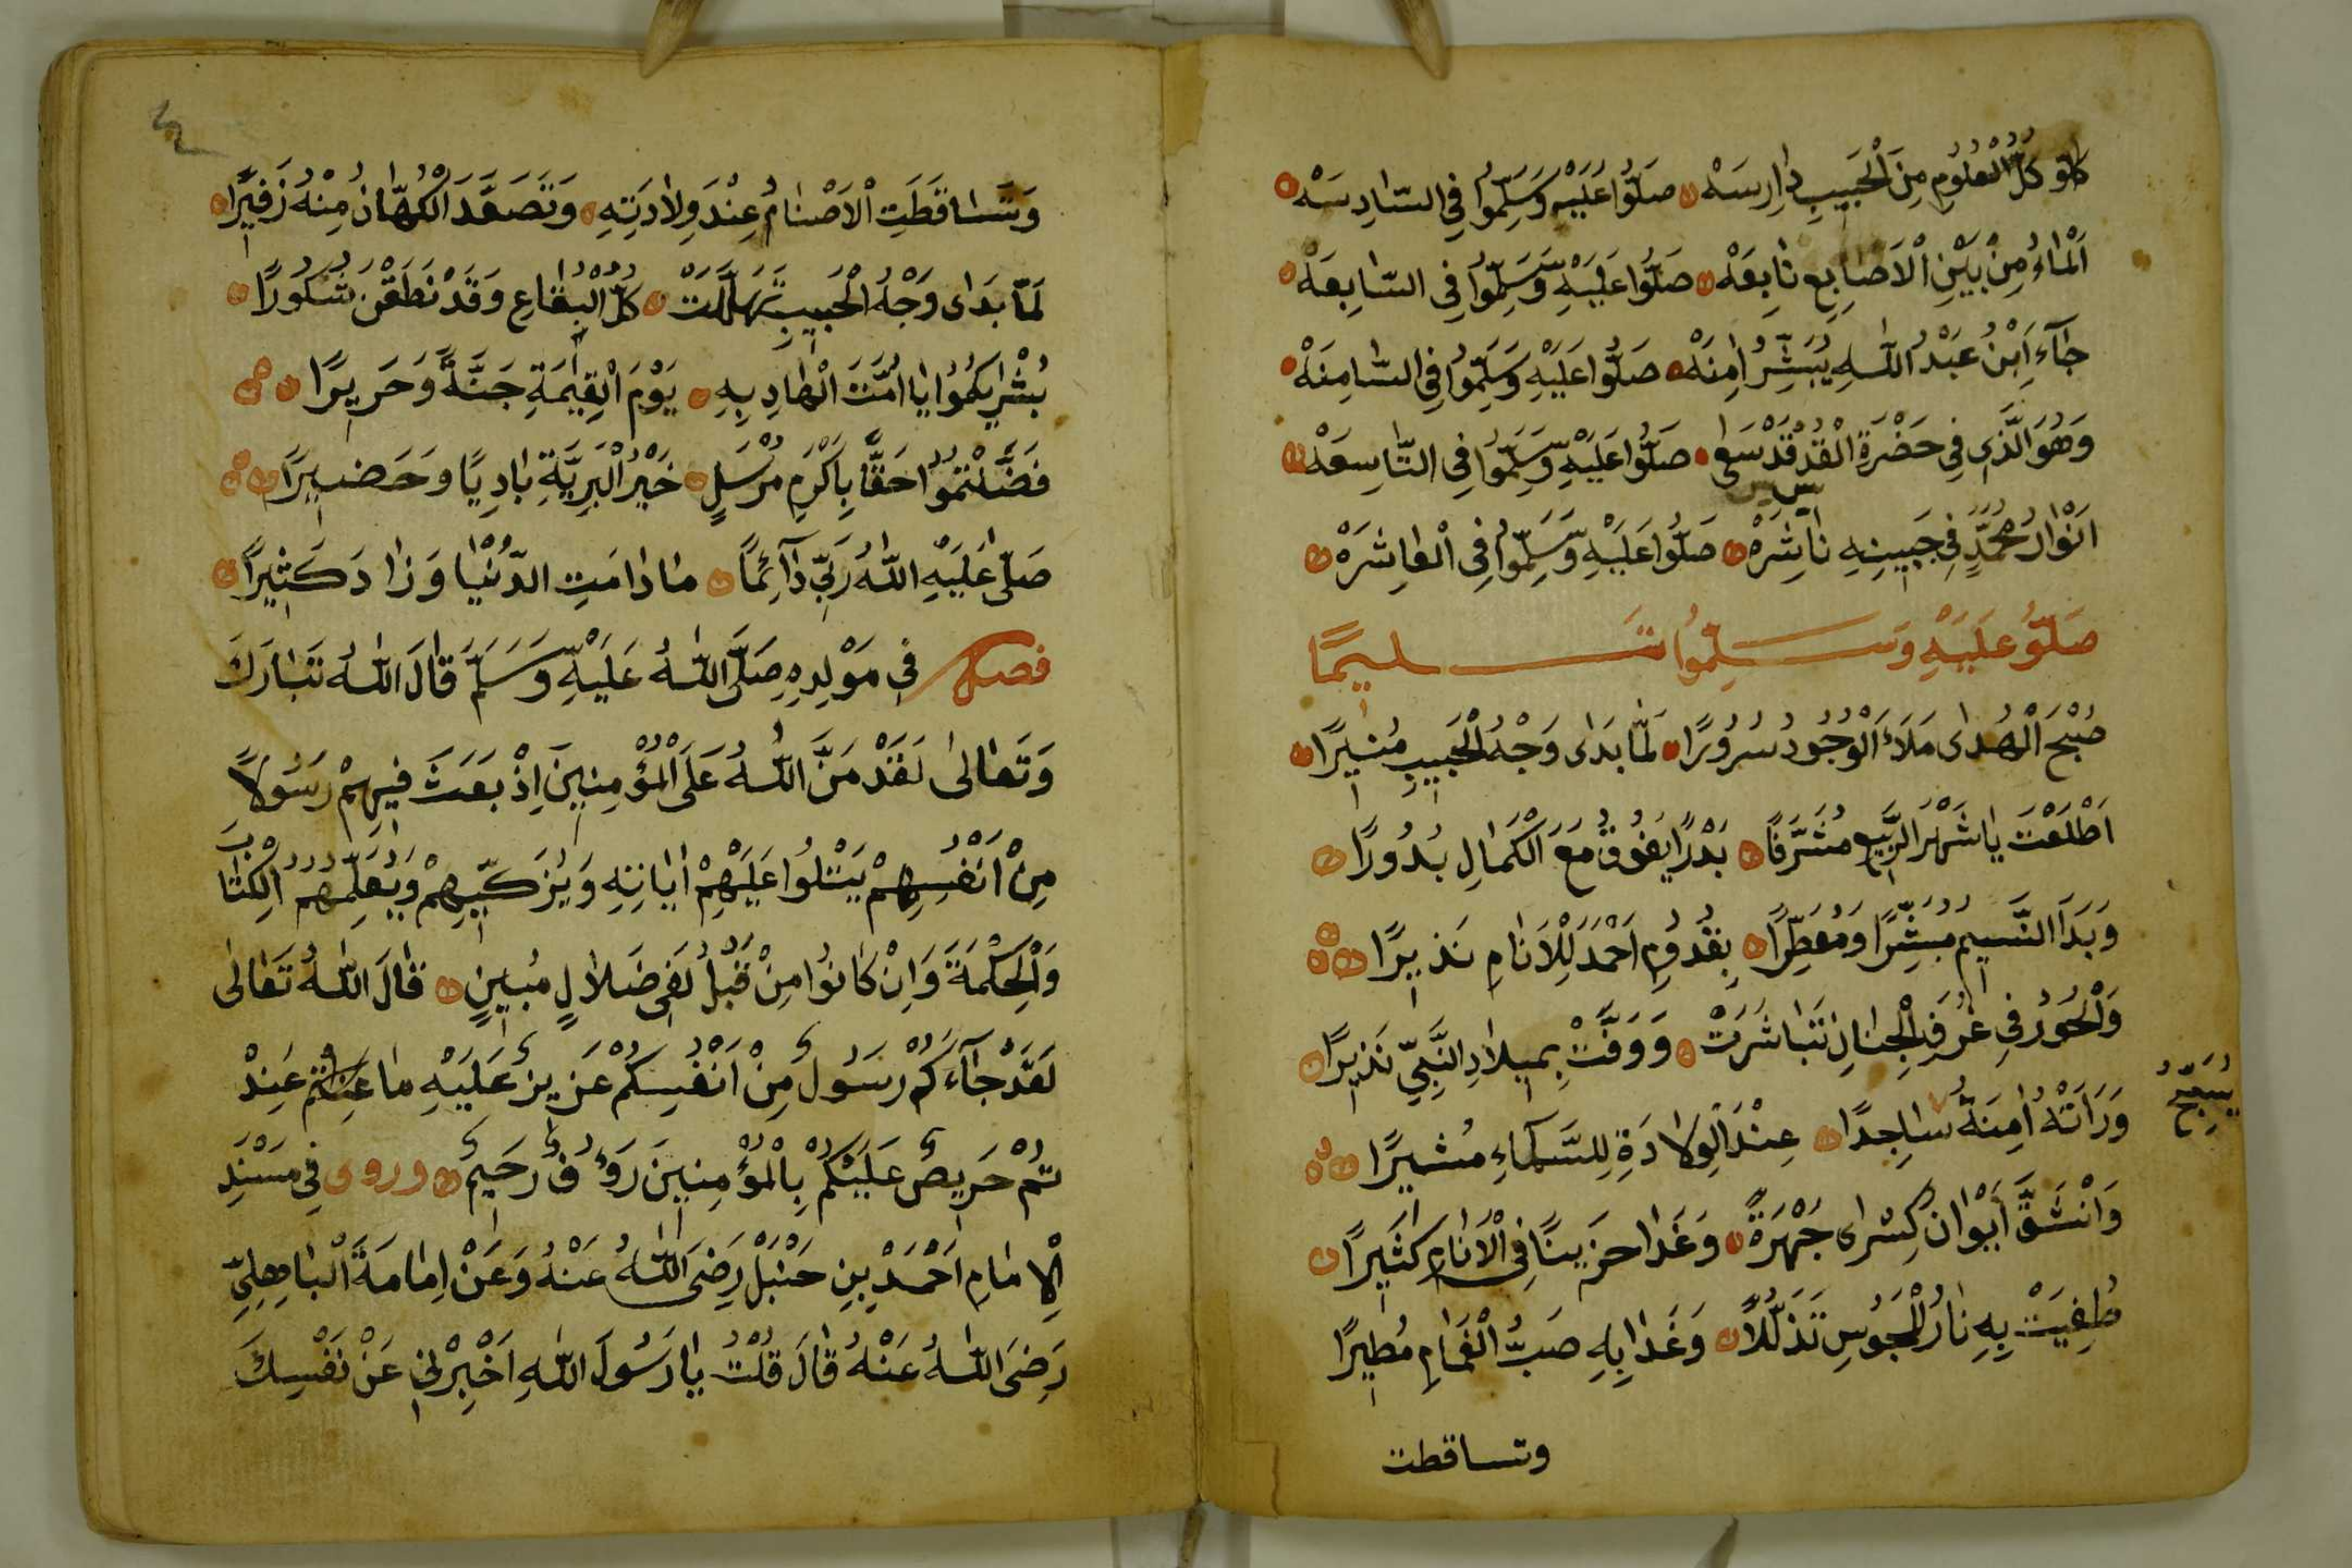 كانو كُلُّ الْعُلُومِ مِنَ الْحَبِيبِ دَارِسَهْ صَلُّوا عَلَيْهِ وَسَلِّمُوا فِي السَّادِسَهْ
اَلْمَاءُ مِنْ بَيْنِ الْاَصَابِعِ نَابِعَهْ صَلُّوا عَلَيْهِ وَسَلِّمُوا فِي السَّابِعَهْ
جَآءَ اِبْنُ عَبْدُ اللّٰهِ يُبَشِّرُ اٰمِنَهْ صَلُّوا عَلَيْهِ وَسَلِّمُوا فِي الثَّامِنَهْ
وَهُوَ الَّذِي فِي حَضْرَةِ الْقُدُ قُدْ سَعٰى صَلُّوا عَلَيْهِ وَسَلِّمُوا فِي التَّاسِعَهْ
س
اَنْوَارُ مُحَمَّدٍ فِي جَبِينِهِ نَاشِرَهْ صَلُّوا عَلَيْهِ وَسَلِّمُوا فِي الْعَاشِرَهْ
صَلُّو عَلَيْهِ وَسَلِّمُوا تَسْلِيمًا
صُبْحُ الْهُدٰى مَلَاَءَ الْوُجُودُ سُرُورًا لَمَّا بَدٰى وَجْهُ الْحَبِيبِ مُنِيرًا
اَطْلَعْتَ يَا شَهْرَ الرَّبِيعِ مُشَرَّفًا بَدْرًا يَفُوقُ مَعَ الْكَمَالِ بُدُورًا
وَبَدَا النَّسِيمُ مُبَشِّرًا وَمُعَطِّرًا بِقُدُومِ اَحْمَدَ لِلْاَنَامِ نَذِيرًا
وَالْحُورُ فِي غُرَفِ الْجِنَانِ تَبَاشَرَتْ وَوَفَّتْ بِمِيلَادِ النَّبِيِّ نَذِيرًا
وَرَاَتْهُ اٰمِنَةُ سَاجِدًا عِنْدَ الْوِلَادَةِ لِلسَّمَآءِ مُشِيرًا
يُسَبِّحُ
وَانْشَقَّ اَيْوَانُ كِسْرٰى جَهْرَةً وَغَدَا حَزِينًا فِي الْاَنَامِ كَثِيرًا
طُفِيَتْ بِهِ نَارُ الْمَجُوسِ تَذَلُّلًا وَغَدَا بِهِ صَبُّ الْغَمَامِ مُطِيرًا
وتساقطت
وَتَسَاقَطَتِ الْاَصْنَامُ عِنْدَ وِلَادَتِهِ وَتَصَعَّدَ الْكُهَّانُ مِنْهُ زَفِيرًا
لَمَّا بَدٰى وَجْهُ الْحَبِيبِ تَهَلَّلَتْ كُلُّ الْبِقَاعِ وَقَدْ نَطَقْنَ شُكُورًا
بُشْرٰيكُمُوا يَا اُمَّتَ الْهَادِ بِهِ يَوْمَ الْقِيٰمَةِ جَنَّةً وَحَرِيرًا
فَضِّلْتُمُوا حَقًّا بِاَكْرَمِ مُرْسَلٍ خَيْرُ الْبَرِيَّةِ بَادِيًا وَحَضِيرًا
صَلّٰى عَلَيْهِ اللّٰهُ رَبِّي دَآئِمًا مَا دَامَتِ الدُّنْيَا وَزَادَ كَثِيرًا
فصل فِي مَوْلِدِهِ صَلَّى اللّٰهُ عَلَيْهِ وَسَلَّمَ قَالَ اللّٰهُ تَبَارَكَ
وَتَعَالٰى لَقَدْ مَنَّ اللّٰهُ عَلَى الْمُؤْمِنِينَ اِذْ بَعَثَ فِيهِمْ رَسُولًا
مِنْ اَنْفُسِهِمْ يَتْلُوا عَلَيْهِمْ اٰيَاتِهِ وَيُزَكِّيهِمْ وَيُعَلِّمُهُمُ الْكِتَابَ
وَالْحِكْمَةَ وَاِنْ كَانُوا مِنْ قَبْلُ لَفِي ضَلَالٍ مُبِينٍ قَالَ اللّٰهُ تَعَالٰى
لَقَدْ جَآءَكُمْ رَسُولٌ مِنْ اَنْفُسِكُمْ عَزِيزٌ عَلَيْهِ مَا عَنِتُّمْ عِنْدَ
تُمْ حَرِيصٌ عَلَيْكُمْ بِالْمُؤْمِنِينَ رَؤُفٌ رَحِيمٌ وروى فِي مَسْنَدِ
الْاِمَامِ اَحْمَدْ بِنِ حَنْبَلْ رَضِيَ اللّٰهُ عَنْهُ وَعَنْ اِمَامَةَ الْبَاهِلِيِّ
رَضِيَ اللّٰهُ عَنْهُ قَالَ قُلْتُ يَا رَسُولَ اللّٰهِ اَخْبِرْنِي عَنْ نَفْسِكَ